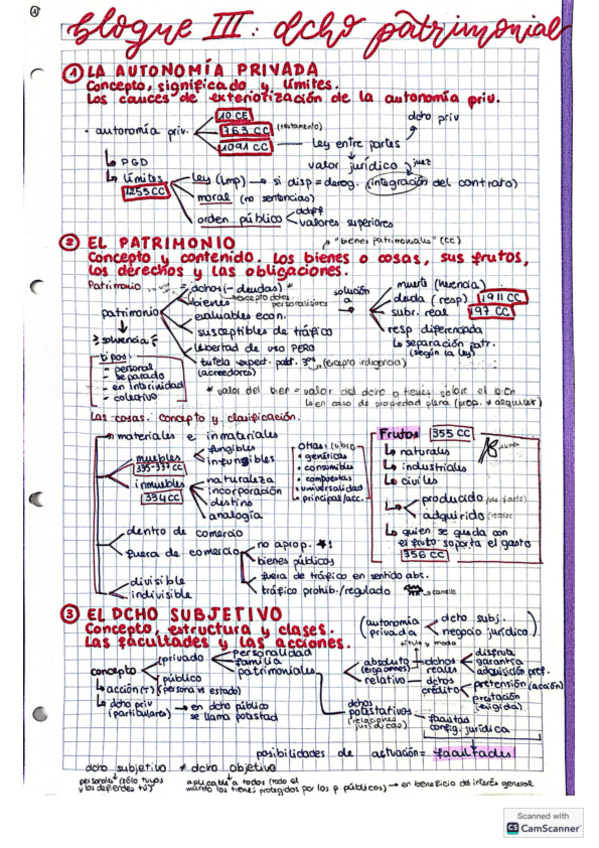 ①
bloque III: dcho patrimonial
① LA AUTONOMÍA PRIVADA
Concepto, significado y límites.
Los cauces de exteriotización de la autonomía priv.
10 CE
· autonomía priv. 763 CC (testamento)
1091 CC ley entre partes
dcho priv
valor jurídico juez
↳ PGD
↳ límites
1255 CC
ley (imp) → si disp = derog. (integración del contrato)
moral (no sentencias)
orden público
ddff
valores superiores
② EL PATRIMONIO
"bienes patrimoniales" (CC)
Concepto y contenido. Los bienes o cosas, sus frutos,
los derechos y las obligaciones.
Patrimonio
patrimonio
= dchos (- deudas)
bienes
excepto dchos personalísimos
evaluables econ.
susceptibles de tráfico
libertad de uso PERO
tutela expect. patr. 3os (excepto indigencia)
(acreedores)
solución a
muerte (herencia)
deuda (resp) 1911 CC
subr. real 197 CC
resp diferenciada
↳ separación patr.
(según la ley)
solvencia
tipos:
- personal
- separado
- en interinidad
- colectivo
* valor del bien = valor del dcho q tienes sobre el bien
↳ en caso de propiedad plena (prop. ≠ alquiler)
Las cosas. Concepto y clasificación.
materiales e inmateriales
muebles
335-337 CC
fungibles
infungibles
inmuebles
334 CC
naturaleza
incorporación
destino
analogía
Otras: (libro)
• genéricas
• consumibles
• compuestas
• universalidad
• principal/acc.
Frutos 355 CC
↳ naturales
↳ industriales
↳ civiles
producido
adquirido
↳ quien se queda con
el fruto soporta el gasto
356 CC
dentro de comercio
fuera de comercio
no aprop.
bienes públicos
fuera de tráfico en sentido abs.
tráfico prohib./regulado
divisible
indivisible
③ EL DCHO SUBJETIVO
Concepto, estructura y clases.
Las facultades y las acciones.
(autonomía privada
dcho subj.
negocio jurídico)
título y modo
concepto
privado
personalidad
familia
patrimoniales
público
(persona vs estado)
↳ acción (r)
↳ dcho priv
(particulares) → en dcho público
se llama potestad
absoluto
(erga omnes)
dchos reales
disfruta
garantía
adquisición pref.
relativo
dchos crédito
pretensión (acción)
prestación
(exigida)
dchos
potestativos
(relaciones jurídicas)
facultas
config. jurídica
posibilidades de actuación = facultades
dcho subjetivo ≠ dcho objetivo
personales (sólo tuyos
y los defiendes tú)
aplicable a todos (todo el
mundo los tiene; protegidos por los p públicos) → en beneficio del interés general
Scanned with
CS CamScanner